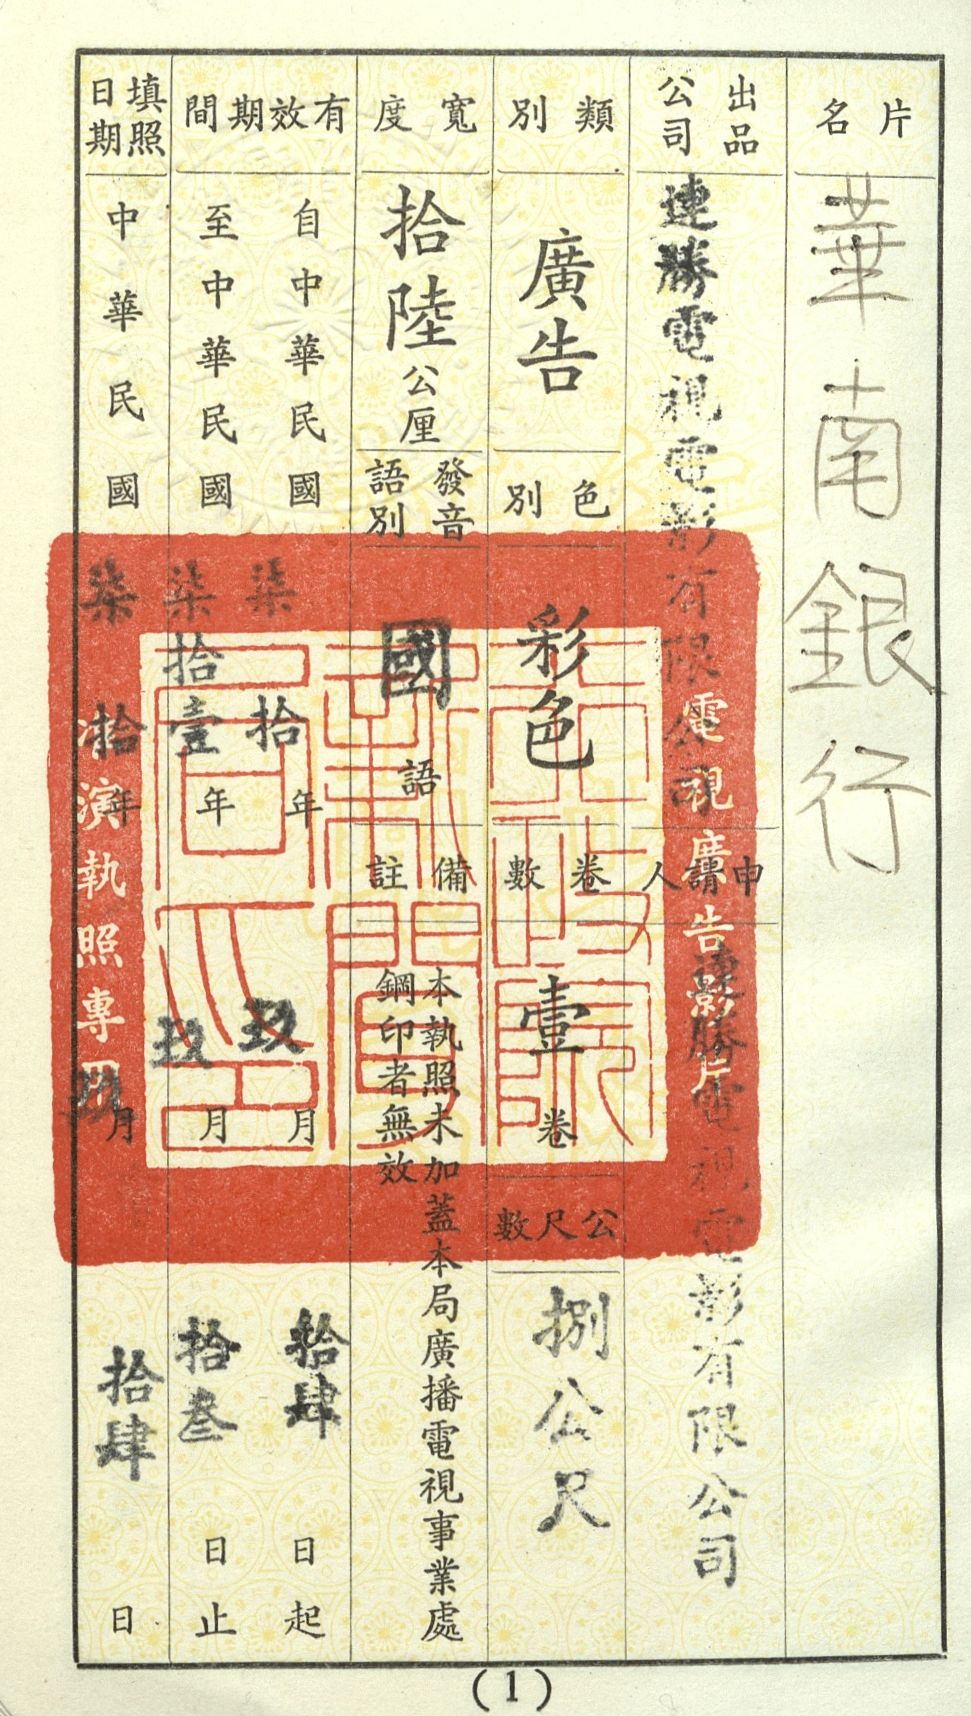 片名
華南銀行
出品公司
連勝電視電影有限公司
申請人
連勝電視電影有限公司
類別
廣告
色別
彩色
卷數
壹卷
公尺數
捌公尺
寬度
拾陸公厘
發音語別
國語
備註
本執照未加蓋本局廣播電視事業處
鋼印者無效
有效期間
自中華民國柒拾年玖月拾肆日起
至中華民國柒拾壹年玖月拾叁日止
填照日期
中華民國柒拾年玖月拾肆日
電視廣告影片
演執照專
行政院新聞局印
(1)